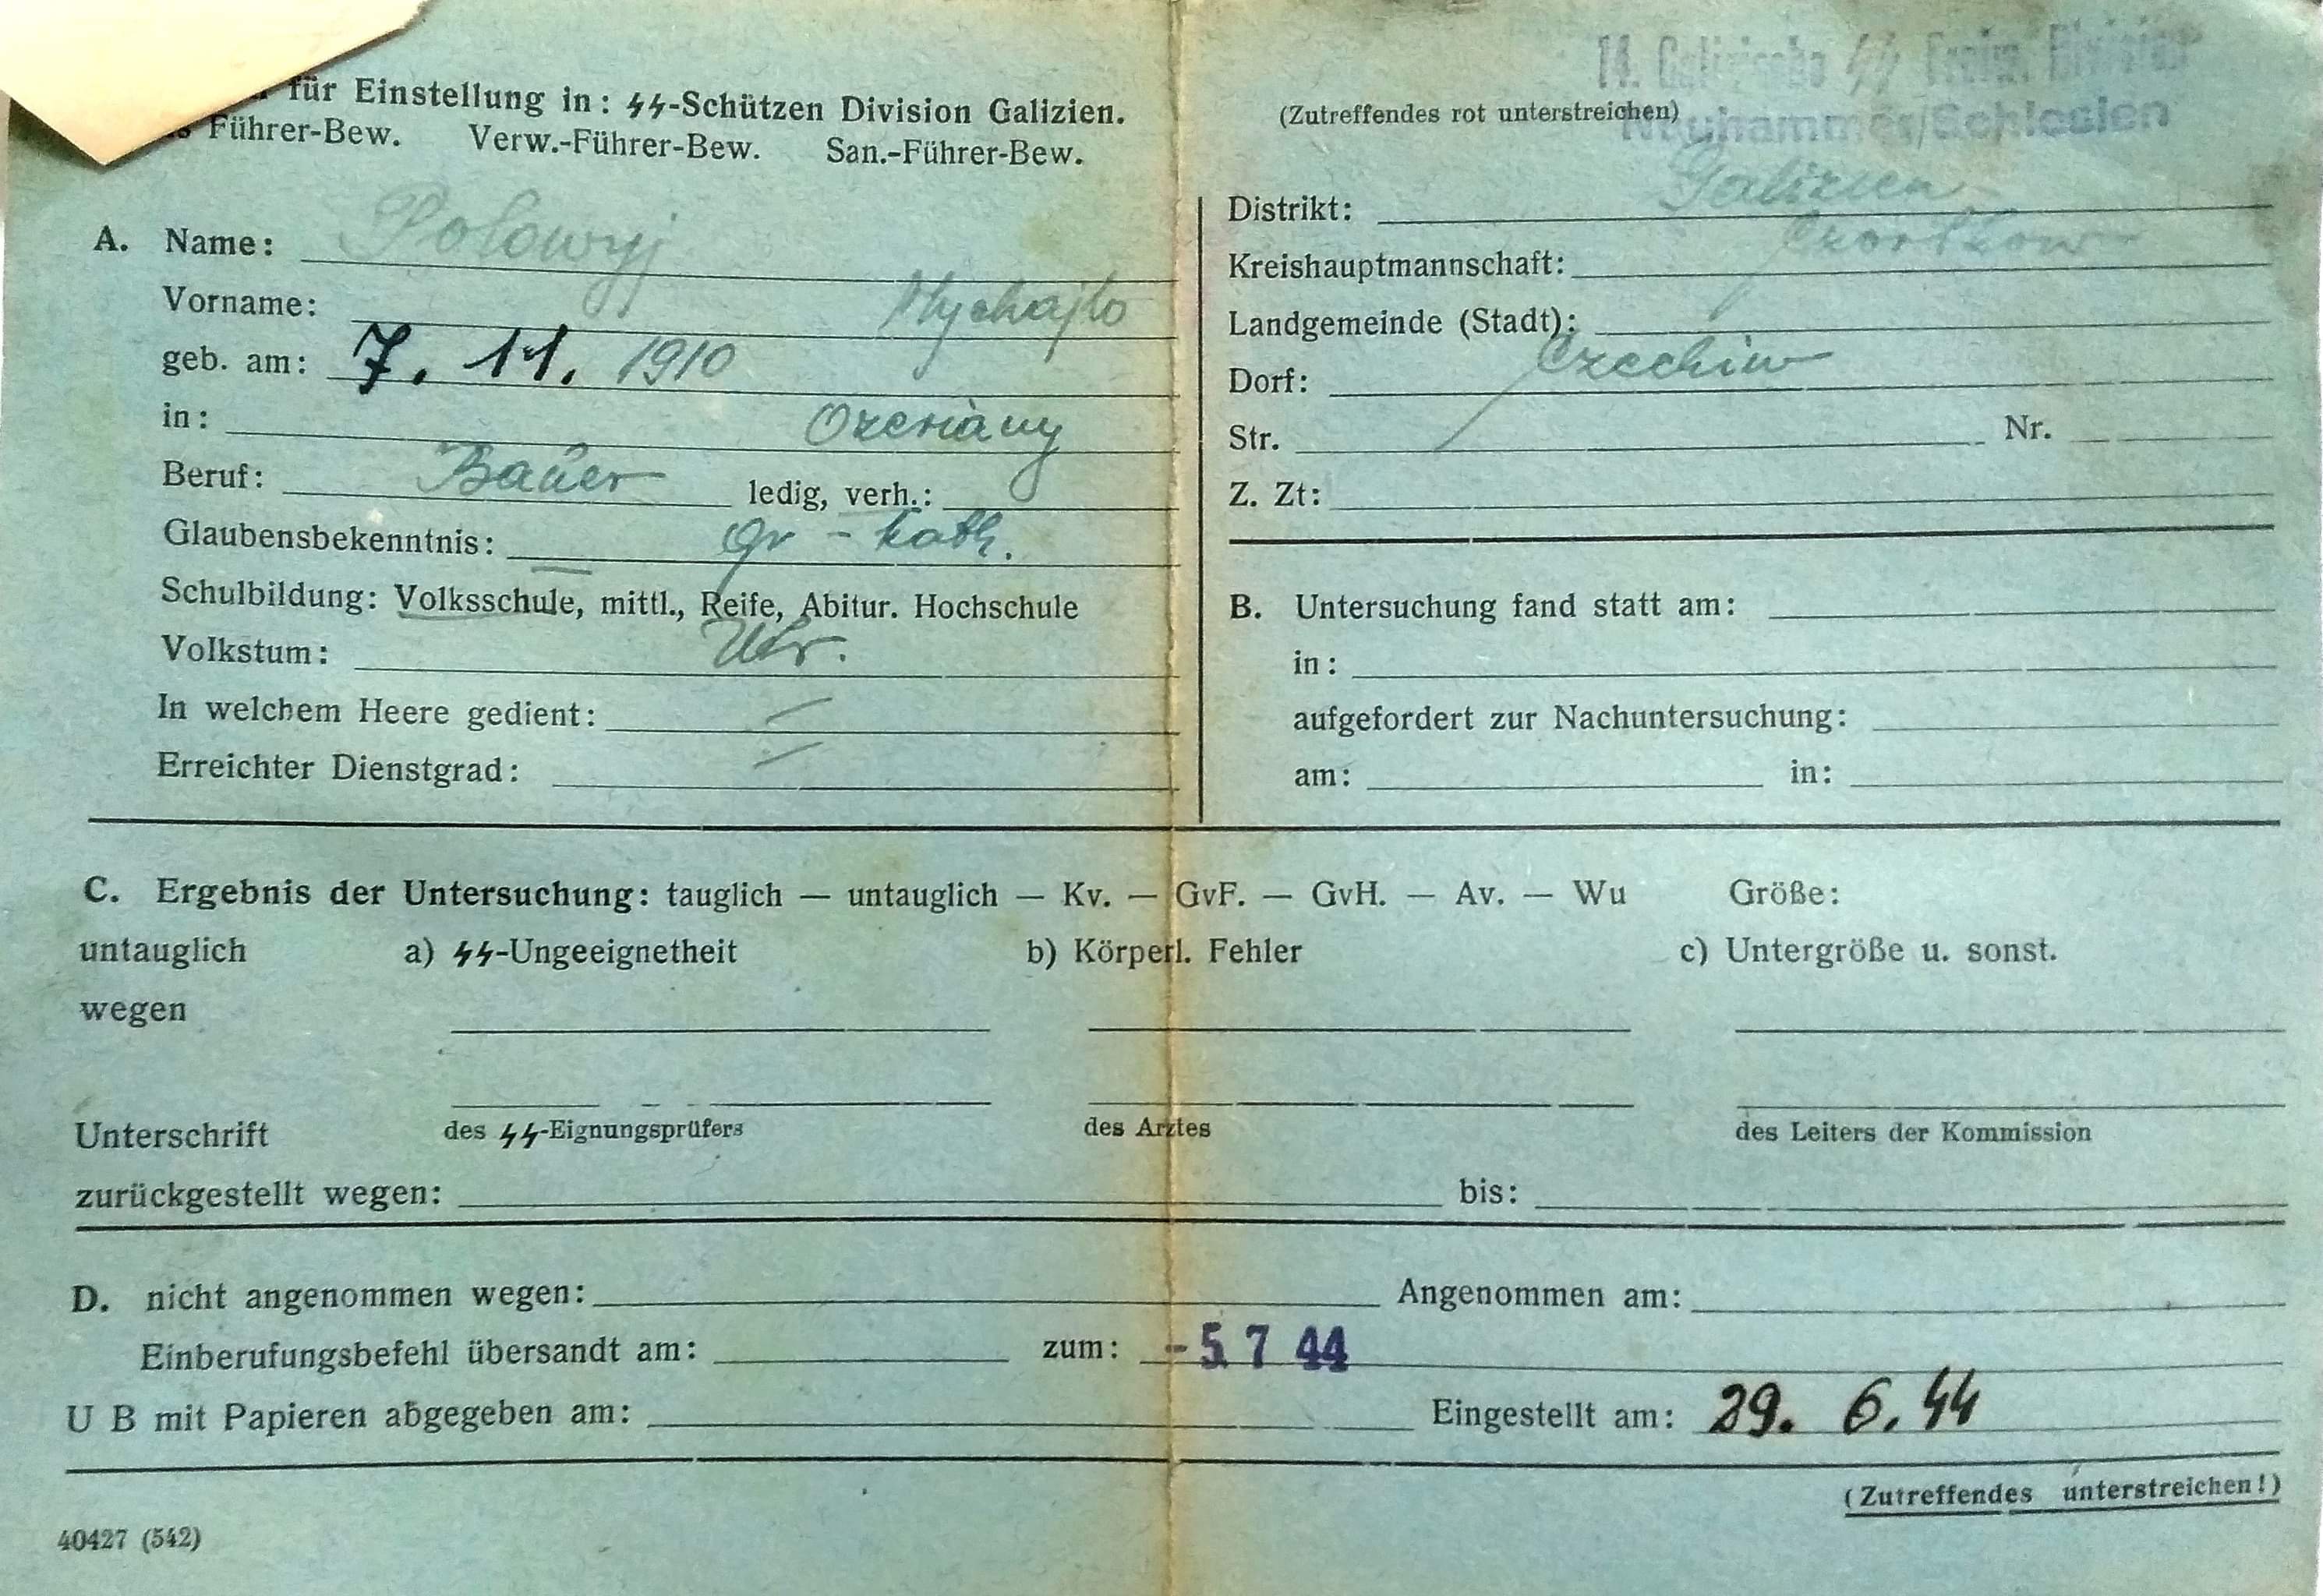 für Einstellung in: SS-Schützen Division Galizien.
Führer-Bew. Verw.-Führer-Bew. San.-Führer-Bew.
A. Name: Polowyj
Vorname: Mychajlo
geb. am: 7. 11. 1910
in: Ozeriany
Beruf: Bauer ledig, verh.:
Glaubensbekenntnis: gr - kath.
Schulbildung: Volksschule, mittl., Reife, Abitur. Hochschule
Volkstum: Ukr.
In welchem Heere gedient: —
Erreichter Dienstgrad: —
14. Galizische SS Freiw. Division
Neuhammer/Schlesien
(Zutreffendes rot unterstreichen)
Distrikt: Galizien
Kreishauptmannschaft: Czortkow
Landgemeinde (Stadt):
Dorf: Czechiw
Str. Nr.
Z. Zt:
B. Untersuchung fand statt am:
in:
aufgefordert zur Nachuntersuchung:
am: in:
C. Ergebnis der Untersuchung: tauglich — untauglich — Kv. — GvF. — GvH. — Av. — Wu Größe:
untauglich a) SS-Ungeeignetheit b) Körperl. Fehler c) Untergröße u. sonst.
wegen
Unterschrift des SS-Eignungsprüfers des Arztes des Leiters der Kommission
zurückgestellt wegen: bis:
D. nicht angenommen wegen: Angenommen am:
Einberufungsbefehl übersandt am: zum: -5. 7 44
U B mit Papieren abgegeben am: Eingestellt am: 29. 6. 44
(Zutreffendes unterstreichen!)
40427 (542)